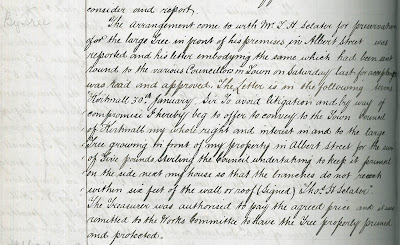 consider and report.
Big Tree
The arrangement come to with Mr. T. H. Sclater for preservation
of the large Tree in front of his premises in Albert Street was
reported and his letter embodying the same which had been sent
round to the various Councillors in Town on Saturday last for acceptance
was read and approved. The letter is in the following terms
"Kirkwall 30th January. Sir To avoid litigation and by way of
compromise I hereby beg to offer to convey to the Town Council
of Kirkwall my whole right and interest in and to the large
Tree growing in front of my property in Albert Street for the sum
of Five pounds Sterling the Council undertaking to keep it pruned
on the side next my house so that the branches do not reach
within six feet of the wall or roof (Signed) "Thos. H Sclater".
The Treasurer was authorised to pay the agreed price and it was
remitted to the Works Committee to have the Tree properly pruned
and protected.